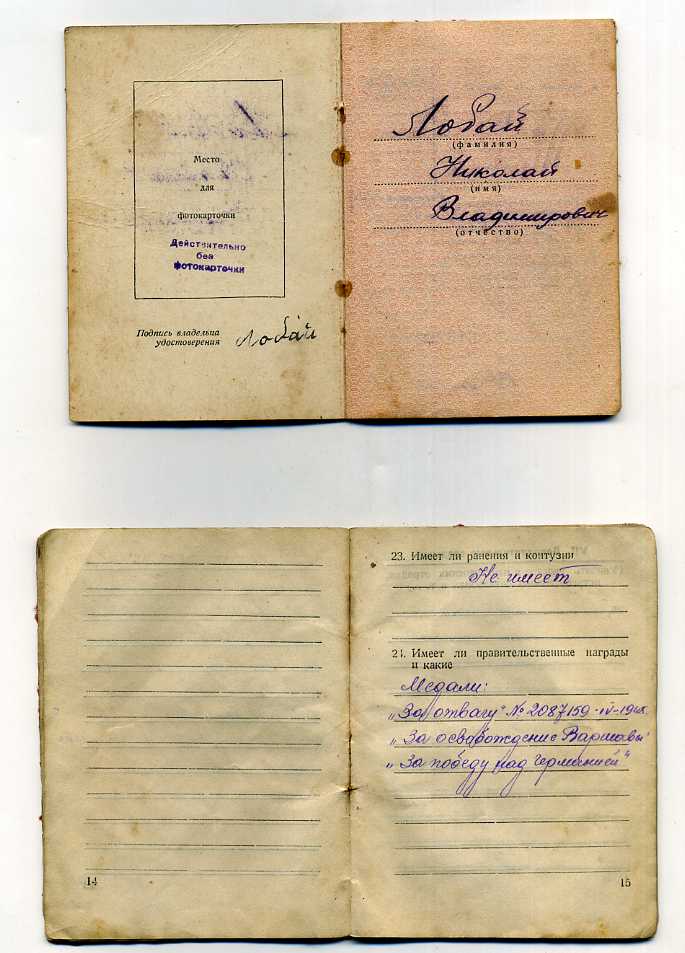 Место
для
фотокарточки
Действительно
без
фотокарточки
Подпись владельца
удостоверения
Лобай
Лобай
(фамилия)
Николай
(имя)
Владимирович
(отчество)
14
23. Имеет ли ранения и контузии
Не имеет
24. Имеет ли правительственные награды
и какие
Медали:
„За отвагу" № 2087159-IV-
„За освобождение Варшавы"
„За победу над Германией"
15